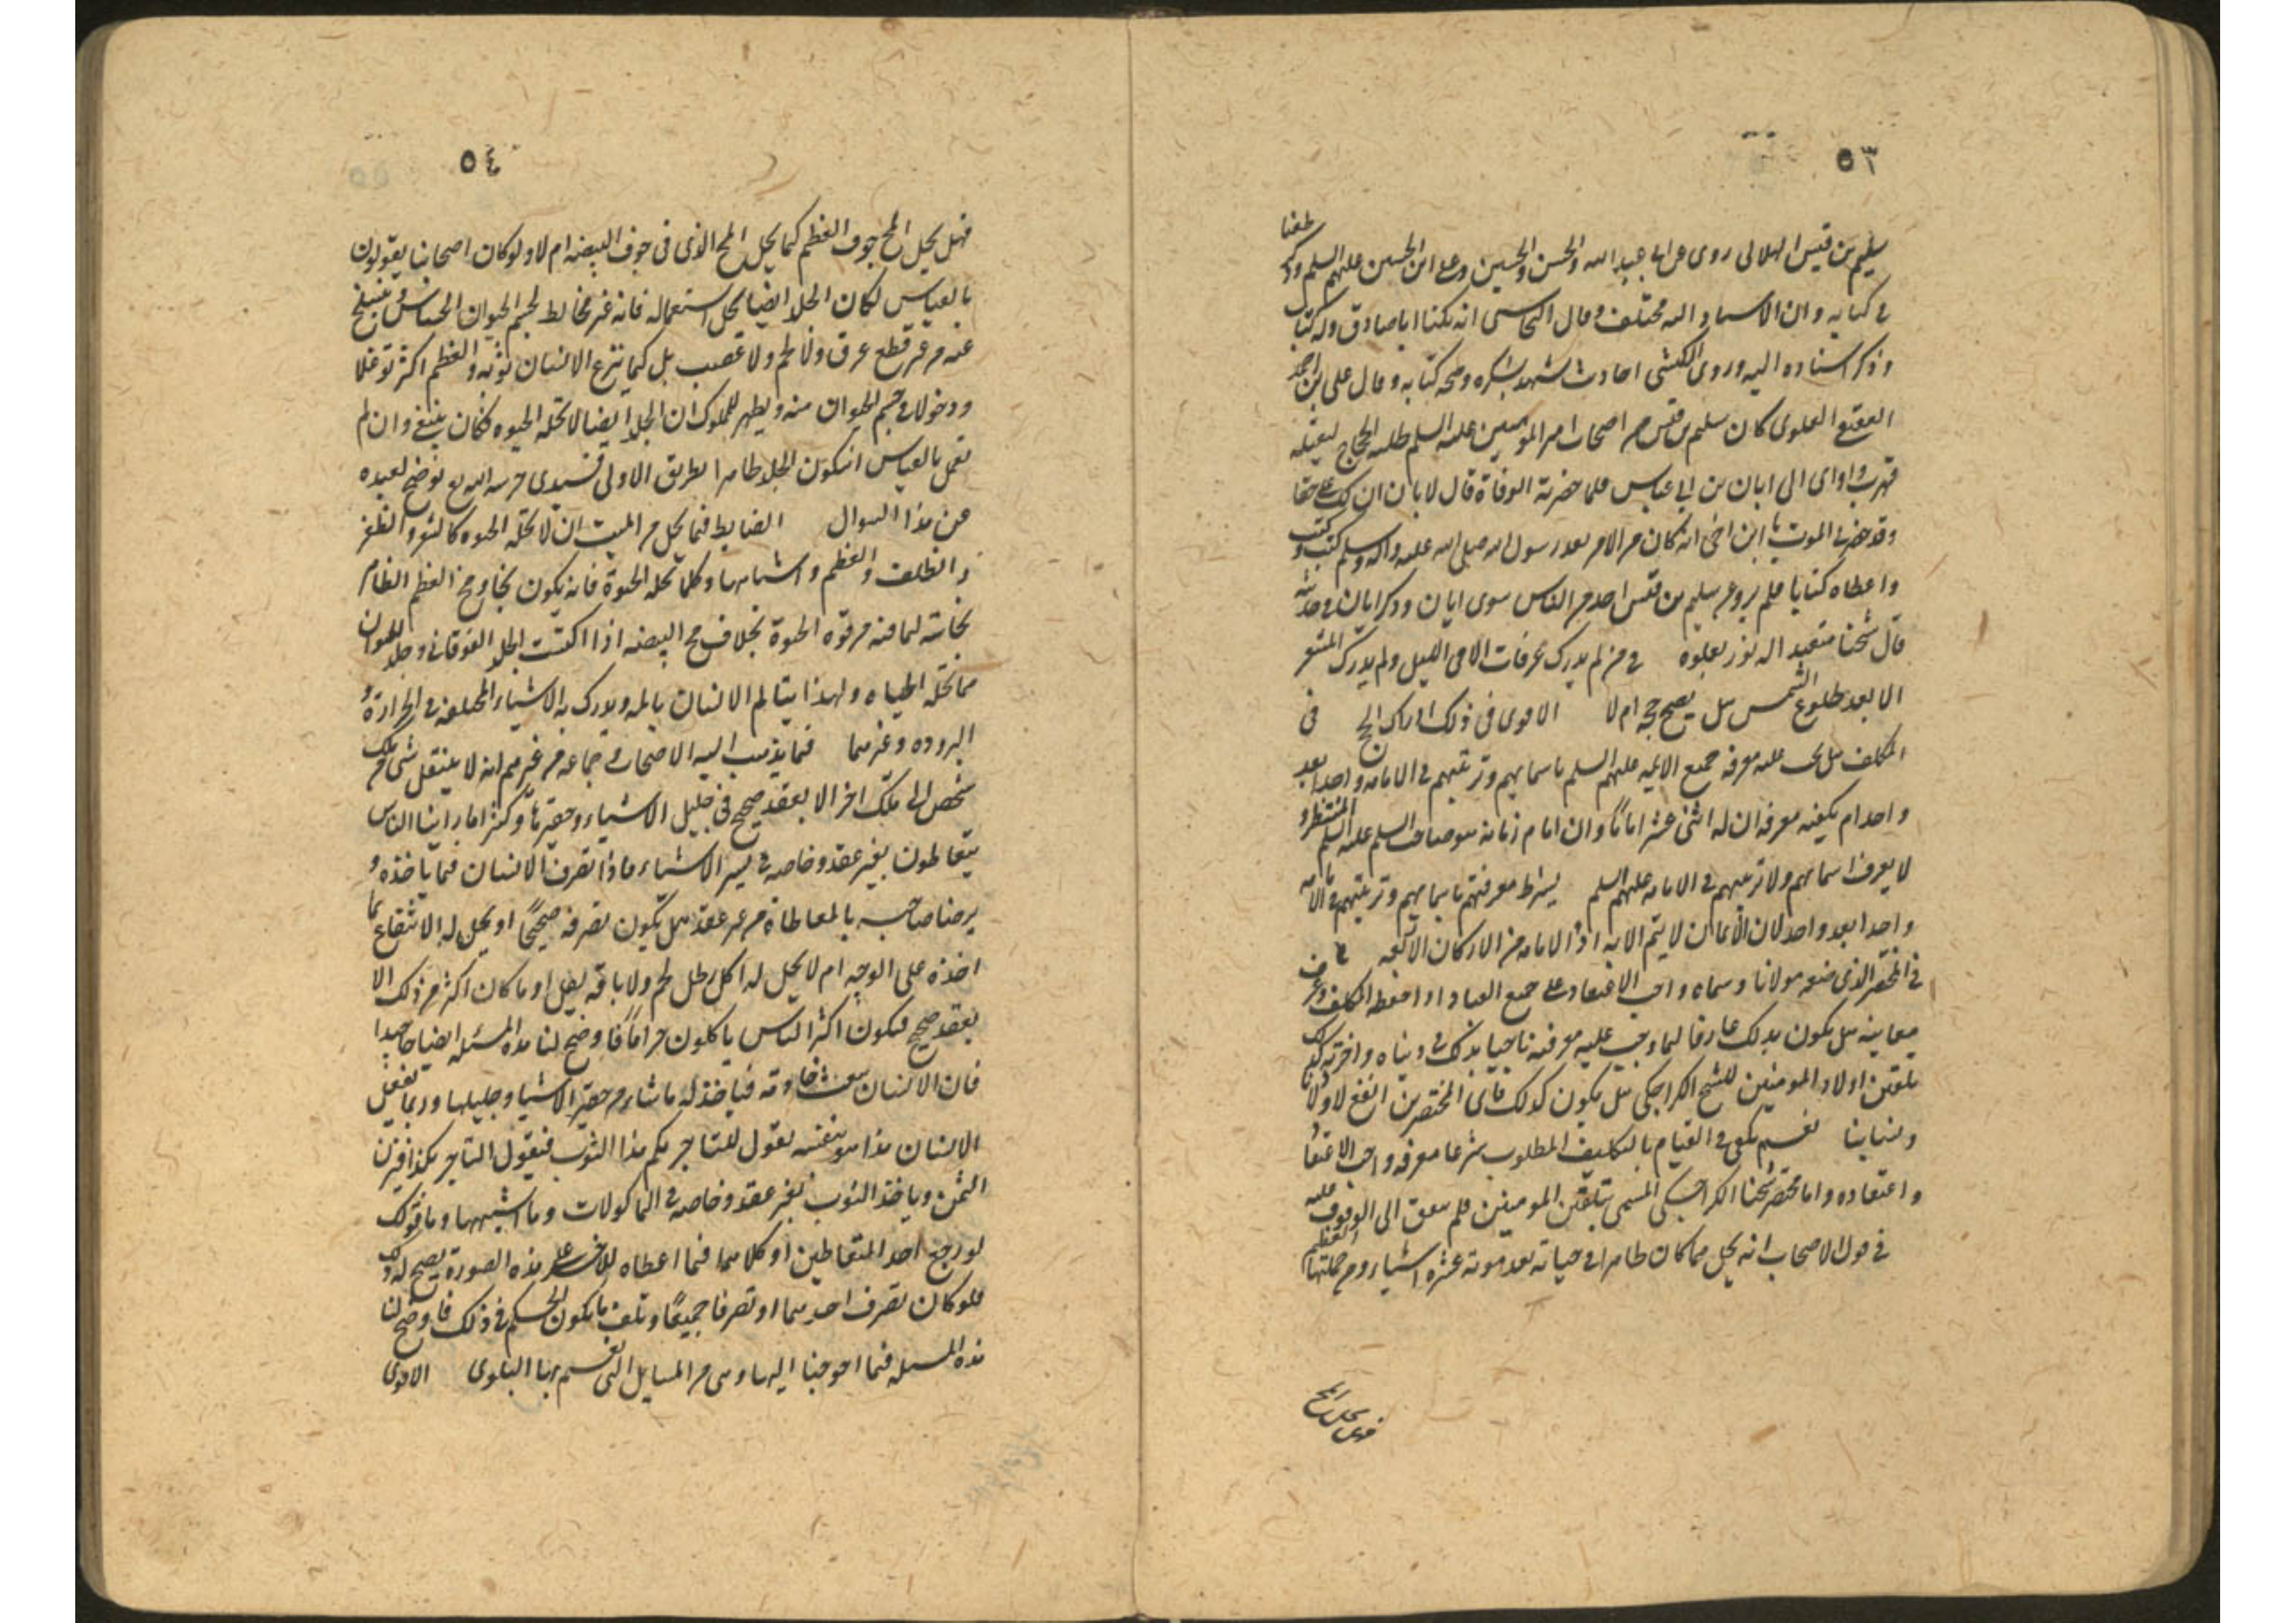 ٥٣
سليم بن قيس الهلالى روى عن ابى عبد الله والحسن والحسين وعلى ابن الحسين عليهم السلم وذكر
فى كتابه وان الاسناد اليه مختلف وقال النجاشى انه يكنا ابا صادق وله كتاب
وذكر اسناده اليه وروى الكشى احاديث تشهد بشكره وصحه كتابه وقال على بن احمد
العقيقى العلوى كان سليم بن قيس من اصحاب امير المومنين عليه السلم طلبه الحجاج ليقتله
فهرب واوى الى ابان بن ابى عياش فلما حضرته الوفاة قال لابان ان لك على حقا
وقد حضرنى الموت يا ابن اخى انه كان من الامر بعد رسول الله صلى الله عليه واله وسلم كيت وكيت
واعطاه كتابا فلم يرو عن سليم بن قيس احد من الناس سوى ابان وذكر ابان فى حديثه
قال شيخنا متعبد اله نور بعلوه فى من لم يدرك عرفات الا فى الليل ولم يدرك المشعر
الا بعد طلوع الشمس هل يصح حجه ام لا الاقوى فى ذلك ادراك الحج فى
المكلف هل يجب عليه معرفة جميع الايمه عليهم السلم باسمايهم وترتيبهم فى الامامه واحدا بعد
واحد ام يكفيه معرفة ان له اثنى عشر اماما وان امام زمانه هو صاحب السلم عليه السلم المنتظر و
لا يعرف اسماهم ولا ترتيبهم فى الامامه عليهم السلم يشترط معرفتهم باسمايهم وترتيبهم فى الامامه
واحدا بعد واحد لان الايمان لا يتم الا به اذ الامامه من الاركان الاربعه
فى المختصر الذى صنعه مولانا وسماه واجب الاعتقاد على جميع العباد اذا حفظه المكلف وعرف
معانيه هل يكون بذلك عارفا لما وجب عليه معرفته ناجيا بذلك فى دنياه واخرته
تلقين اولاد المومنين للشيخ الكراجكى هل يكون كذلك فاى المختصرين انفع لاولادنا
ونسائنا نعم يكفى فى القيام بالتكليف المطلوب شرعا معرفه واجب الاعتقاد
واعتقاده واما مختصر شيخنا الكراجكى المسمى بتلقين المومنين فلم يتفق الى الوقوف عليه
فى قول الاصحاب انه يحل مما كان طاهرا فى حياته بعد موته عشره اشياء ومن جملتها العظم
٥٤
فهل يحل المخ جوف العظم كما يحل المخ الذى فى جوف البيضه ام لا ولو كان اصحابنا يقولون
بالقياس لكان الجلد ايضا يحل استعماله فانه غير مخالط لجسم الحيوان الحساس وينسلخ
عنه من غير قطع عرق ولا لحم ولا عصب بل كما ينزع الانسان ثوبه والعظم اكثر توغلا
ودخولا فى جسم الحيوان منه ويظهر للملوك ان الجلد ايضا لا تحله الحيوه فكان ينبغى وان لم
نعمل بالقياس ان يكون الجلد طاهرا بطريق الاولى فسيدى حرسه الله يوضح لعبده
عن هذا السوال الضابط فيما يحل من الميت ان لا تحله الحيوه كالشعر والظفر
والظلف والعظم واشباهها وكلما تحله الحيوة فانه يكون نجسا ومخ العظم الظاهر
نجاسته لما فيه من قوه الحيوة بخلاف مح البيضه اذا اكتست الجلد الفوقانى وجلد الحيوان
مما تحله الحياه ولهذا يتالم الانسان بالمه ويدرك به الاشياء المختلفه فى الحرارة و
البروده وغيرهما فيما يذهب اليه الاصحاب وجماعه من غيرهم انه لا ينتقل شى من ملك
شخص الى ملك اخر الا بعقد صحيح فى جليل الاشياء وحقيرها وكثيرا ما راينا الناس
يتعاطون بغير عقد وخاصه فى يسير الاشياء فاذا تصرف الانسان فيما ياخذه و
برضا صاحبه بالمعاطاة من غير عقد هل يكون تصرفه صحيحا او يحل له الانتفاع بما
اخذه على الوجه ام لا يحل له اكل رطل لحم ولا باقه بقل او ما كان اكثر من ذلك الا
بعقد صحيح فيكون اكثر الناس ياكلون حراما فاوضح لنا هذه المسئله ايضاحا جيدا
فان الانسان يبعث خادمه فياخذ له ما شاء من حقير الاشياء وجليلها وربما يفعل
الانسان هذا هو بنفسه يقول للتاجر بكم هذا الثوب فيقول التاجر بكذا فيزن
الثمن وياخذ الثوب بغير عقد وخاصه فى الماكولات وما اشبهها وما قولك
لو رجع احد المتعاطين او كلاهما فيما اعطاه للاخر على هذه الصورة يصح له ذلك
فلو كان تصرف احدهما او تصرفا جميعا وتلف ما يكون الحكم فى ذلك فاوضح لنا
هذه المسئله فما احوجنا اليها وهى من المسايل التى تعم بها البلوى الاقوى